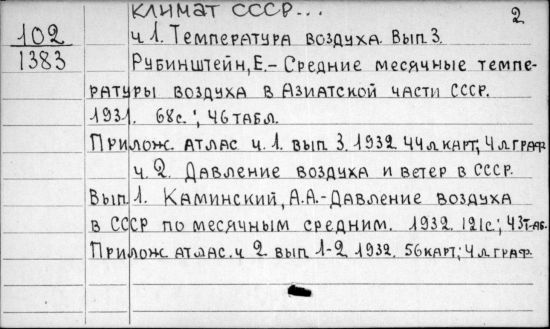 КЛИМАТ СССР...
2
102
1383
ч 1. Температура воздуха. Вып 3.
Рубинштейн, Е.- Средние месячные темпе-
ратуры воздуха в Азиатской части СССР.
1931. 68с.; 46 табл.
Прилож. атлас ч. 1. вып 3. 1932 44л карт; 4л граф
ч 2. Давление воздуха и ветер в СССР.
Вып 1. Каминский, А.А.-Давление воздуха
в СССР по месячным средним. 1932. 121с.; 43т-аб.
Прилож. атлас. ч 2 вып 1-2 1932. 56карт; 4л граф.